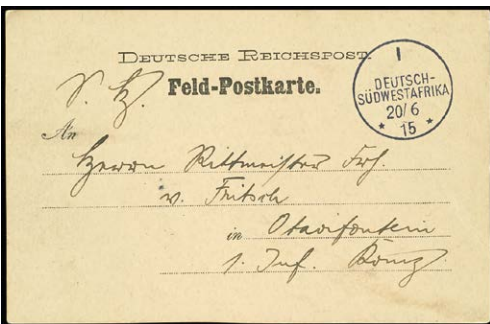 DEUTSCHE REICHSPOST
Feld-Postkarte.
I
DEUTSCH-
SÜDWESTAFRIKA
20/6
* 15 *
An
Herrn Rittmeister Frh.
v. Fritsch
in Otavifontein
1. Inf. Komp.